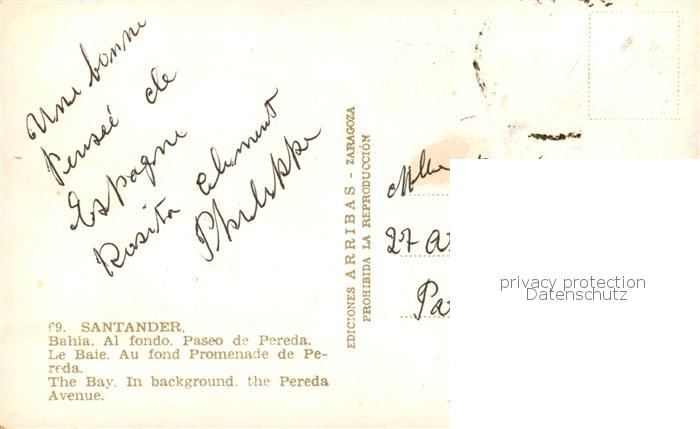 Une bonne
Pensée de
Espagne
Rosita Clement
Philippe
69. SANTANDER.
Bahía. Al fondo. Paseo de Pereda.
Le Baie. Au fond Promenade de Pe-
reda.
The Bay. In background. the Pereda
Avenue.
EDICIONES ARRIBAS - ZARAGOZA
PROHIBIDA LA REPRODUCCIÓN
Mlle
27 A
Pa
privacy protection
Datenschutz